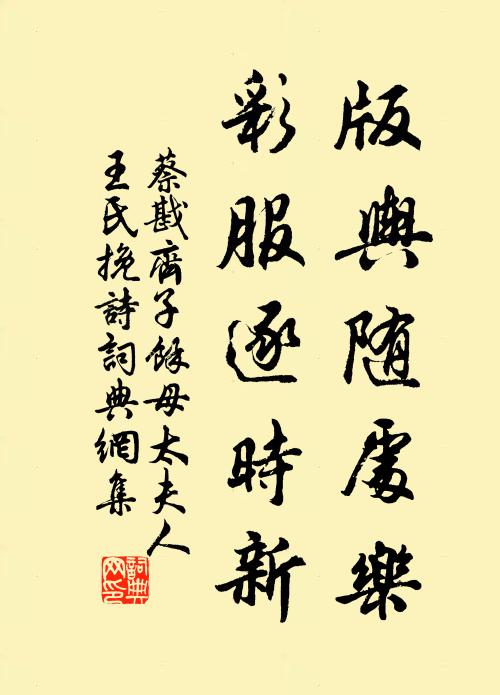 版輿随處樂
彩服逐時新
蔡戡齊子餘母太夫人
王氏挽詩詞典網集
詞典網印